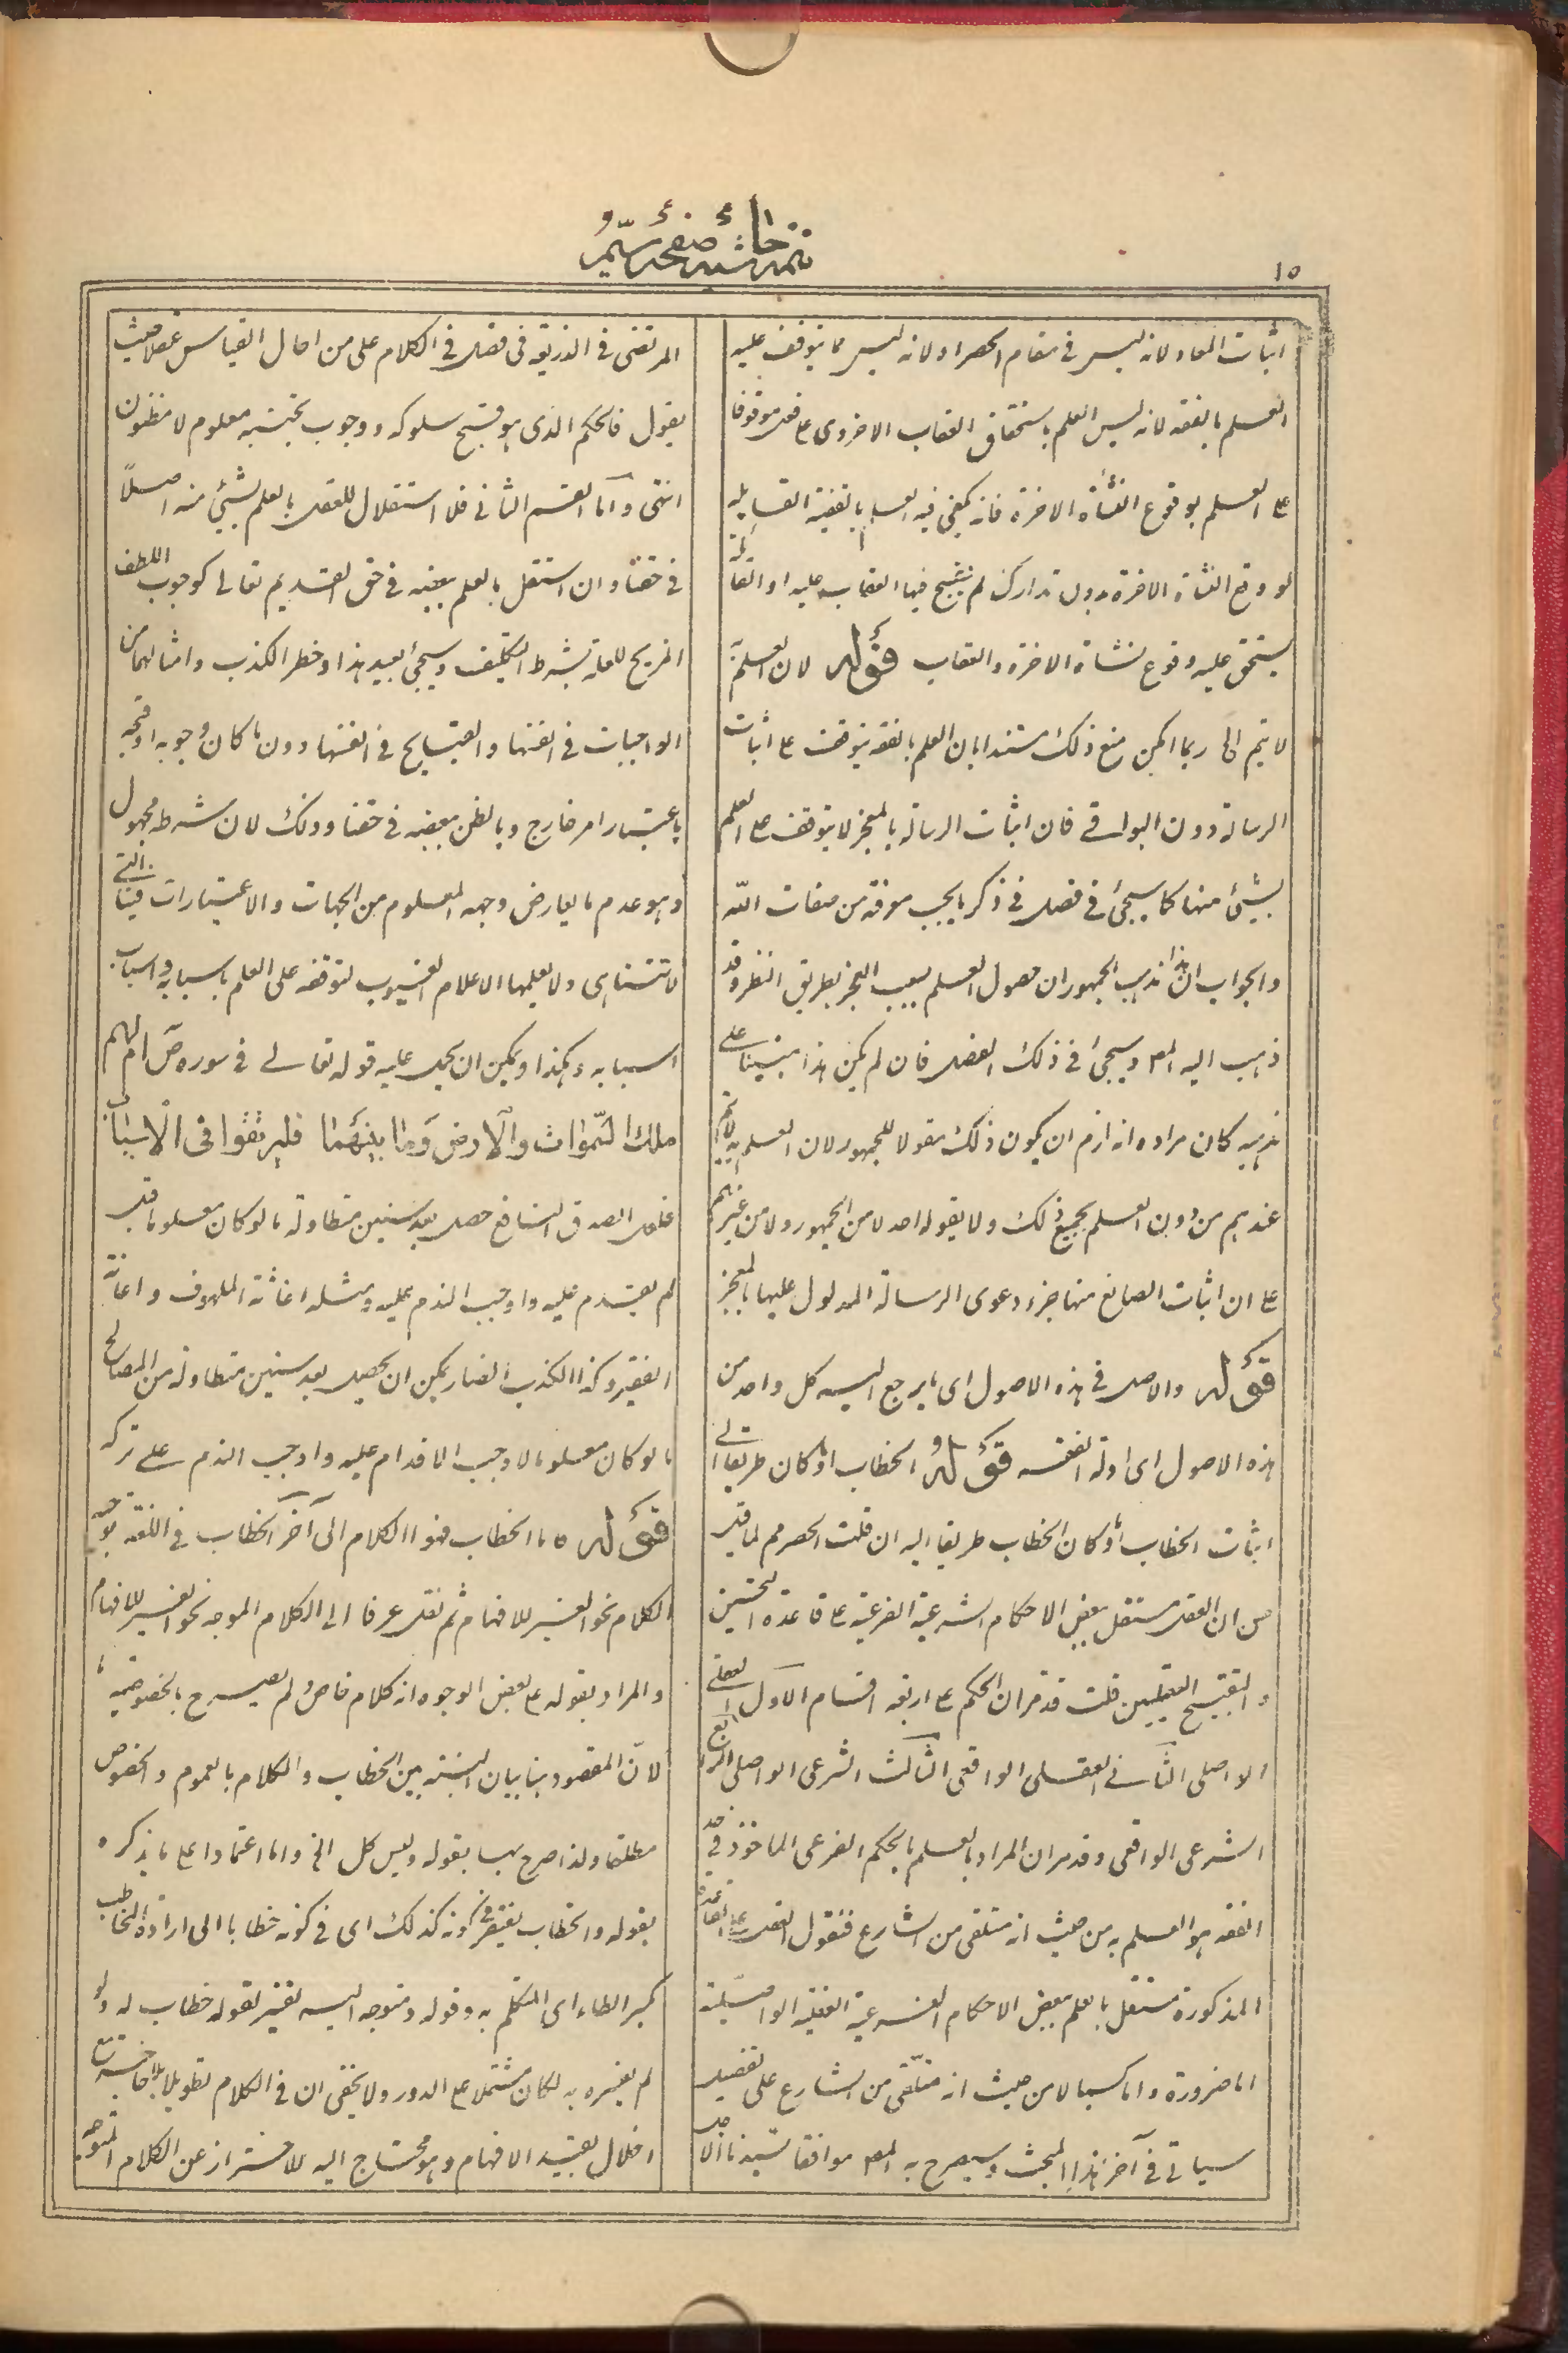 ١٥
اثبات المعاد لانه ليس فى مقام الحصر او لانه ليس مما يتوقف عليه
العلم بالفقه لانه ليس العلم باستحقاق العقاب الاخروى على فعل موقوفا
على العلم بوقوع النشأة الاخرة فانه يكفى فيه العلم بالقضية القايلة
لو وقع النشاة الاخرة بدون تدارك لم يقبح فيها العقاب عليه او القائلة
يستحق عليه وقوع نشاة الاخرة والعقاب قوله لان العلم به
لا يتم الى ربما امكن منع ذلك مستندا بان العلم بالفقه يتوقف على اثبات
الرسالة دون البواقى فان اثبات الرسالة بالمعجز لا يتوقف على العلم
بشيئ منها كما سيجئ فى فصل فى ذكر ما يجب معرفته من صفات الله
والجواب ان هذا مذهب الجمهور ان حصول العلم بعيب المعجز بطريق النظر وقد
ذهب اليه المص وسيجئ فى ذلك الفصل فان لم يكن هذا مبنيا على
مذهبه كان مراده انه لزم ان يكون ذلك مقولا للجمهور لان العلم به لا يتم
عندهم من دون العلم بجميع ذلك ولا يقوله احد لا من الجمهور ولا من غيرهم
على ان اثبات الصانع منها جزء دعوى الرسالة المدلول عليها بالمعجز
قوله والاصل فى هذه الاصول اى ما يرجع اليه كل واحد من
هذه الاصول اى ادلة الفقه قوله الخطاب او كان طريقا الى
اثبات الخطاب او كان الخطاب طريقا اليه ان قلت الحصر مم لما قيل
من ان العقل مستقل ببعض الاحكام الشرعية الفرعية على قاعدة التحسين
والتقبيح العقليين قلت قد مر ان الحكم على اربعة اقسام الاول العقلى
الواصلى الثانى العقلى الواقعى الثالث الشرعى الواصلى الرابع
الشرعى الواقعى وقد مر ان المراد بالعلم بالحكم الفرعى الماخوذ فى حد
الفقه هو العلم به من حيث انه متلقى من الشارع فنقول العقل على القاعدة
المذكورة مستقل بالعلم ببعض الاحكام الفرعية العقلية الواصلية
اما ضرورة واما كسبا لا من حيث انه متلقى من الشارع على تفصيل
سياتى فى آخر هذا المبحث وسيصرح به المص موافقا لسيدنا الاجل
المرتضى فى الذريعة فى فصل فى الكلام على من احال القياس عقلا حيث
يقول فالحكم الذى هو قبح سلوكه ووجوب تجنبه معلوم لا مظنون
انتهى واما القسم الثانى فلا استقلال للعقل بالعلم بشيئ منه اصلا
فى حقنا وان استقل بالعلم ببعضه فى حق القديم تعالى كوجوب اللطف
المزيح للعلة بشرط التكليف وسيجئ بعيد هذا وخطر الكذب وامثالهما من
الواجبات فى انفسها والقبايح فى انفسها دون ما كان وجوبه او قبحه
باعتبار امر خارج وبالظن ببعضه فى حقنا وذلك لان شرطه مجهول
وهو عدم ما يعارض وجهه المعلوم من الجهات والاعتبارات فينا التى
لا تتناهى ولا يعلمها الا علام الغيوب لتوقفه على العلم باسبابه واسباب
اسبابه وهكذا ويمكن ان يحمل عليه قوله تعالى فى سوره ص ام لهم
ملك السموات والارض وما بينهما فليرتقوا فى الاسباب
فلعل الصدق النافع حصل بعد سنين متطاولة ما لو كان معلوما قبل
لم يقدم عليه واوجب الذم عليه ومثله اغاثة الملهوف واعانة
الفقير وكذا الكذب الضار يمكن ان يحصل بعد سنين متطاولة من المصالح
ما لو كان معلوما لاوجب الاقدام عليه واوجب الذم على تركه
قوله واما الخطاب فهو الكلام الى آخر الخطاب فى اللغة توجيه
الكلام نحو الغير للافهام ثم نقل عرفا الى الكلام الموجه نحو الغير للافهام
والمراد بقوله على بعض الوجوه انه كلام خاص ولم يصرح بالخصوصية
لان المقصود هنا بيان النسبة بين الخطاب والكلام بالعموم والخصوص
مطلقا ولذا صرح بها بقوله وليس كل الخ واما اعتمادا على ما يذكره
بقوله والخطاب يفتقر فى كونه كذلك اى فى كونه خطابا الى ارادة المخاطب
بكسر الطاء اى المتكلم به وقوله ومتوجه اليه تفسير لقوله خطاب له ولو
لم يفسره به لكان مشتملا على الدور ولا يخفى ان فى الكلام تطويلا بلا
اخلال بقيد الافهام وهو محتاج اليه للاحتراز عن الكلام المتوجه